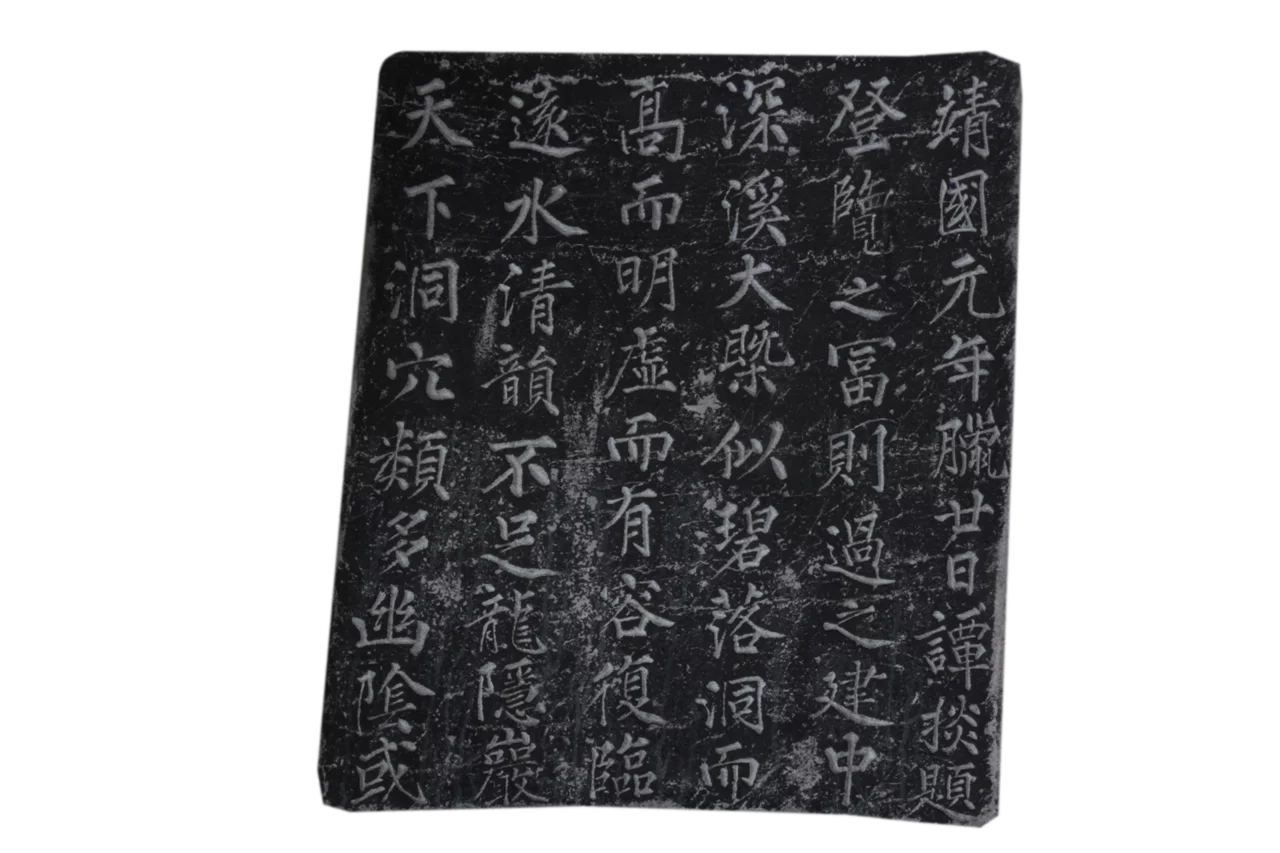 天下洞穴類多幽陰或
遠水清韻不足龍隱巖
髙而明虛而有容復臨
深溪大槩似碧落洞而
登覽之富則過之建中
靖國元年臘廿日譚掞題